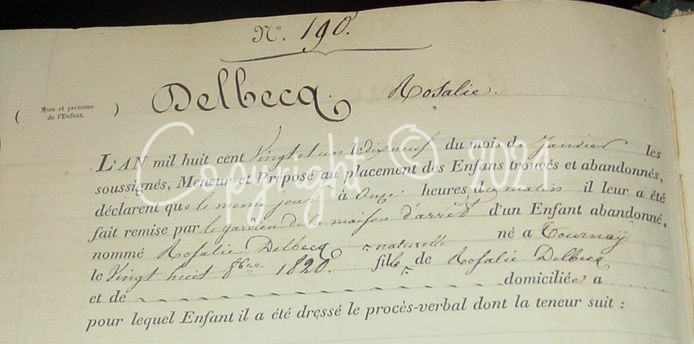 N°. 190.
( Nom et prénoms de l'Enfant. ) Delbecq. Rosalie.
L'AN mil huit cent Vingt et un le dix neuf du mois de Janvier les
soussignés, Meneur et Préposé au placement des Enfans trouvés et abandonnés,
déclarent que le même jour à Onze heures du matin il leur a été
fait remise par le gardien de la maison d'arrêt d'un Enfant abandonné,
nommé Rosalie Delbecq né a Tournay
le Vingt huit 8bre 1820. fille naturelle de Rosalie Delbecq
et de domiciliée a
pour lequel Enfant il a été dressé le procès-verbal dont la teneur suit :
Copyright ©